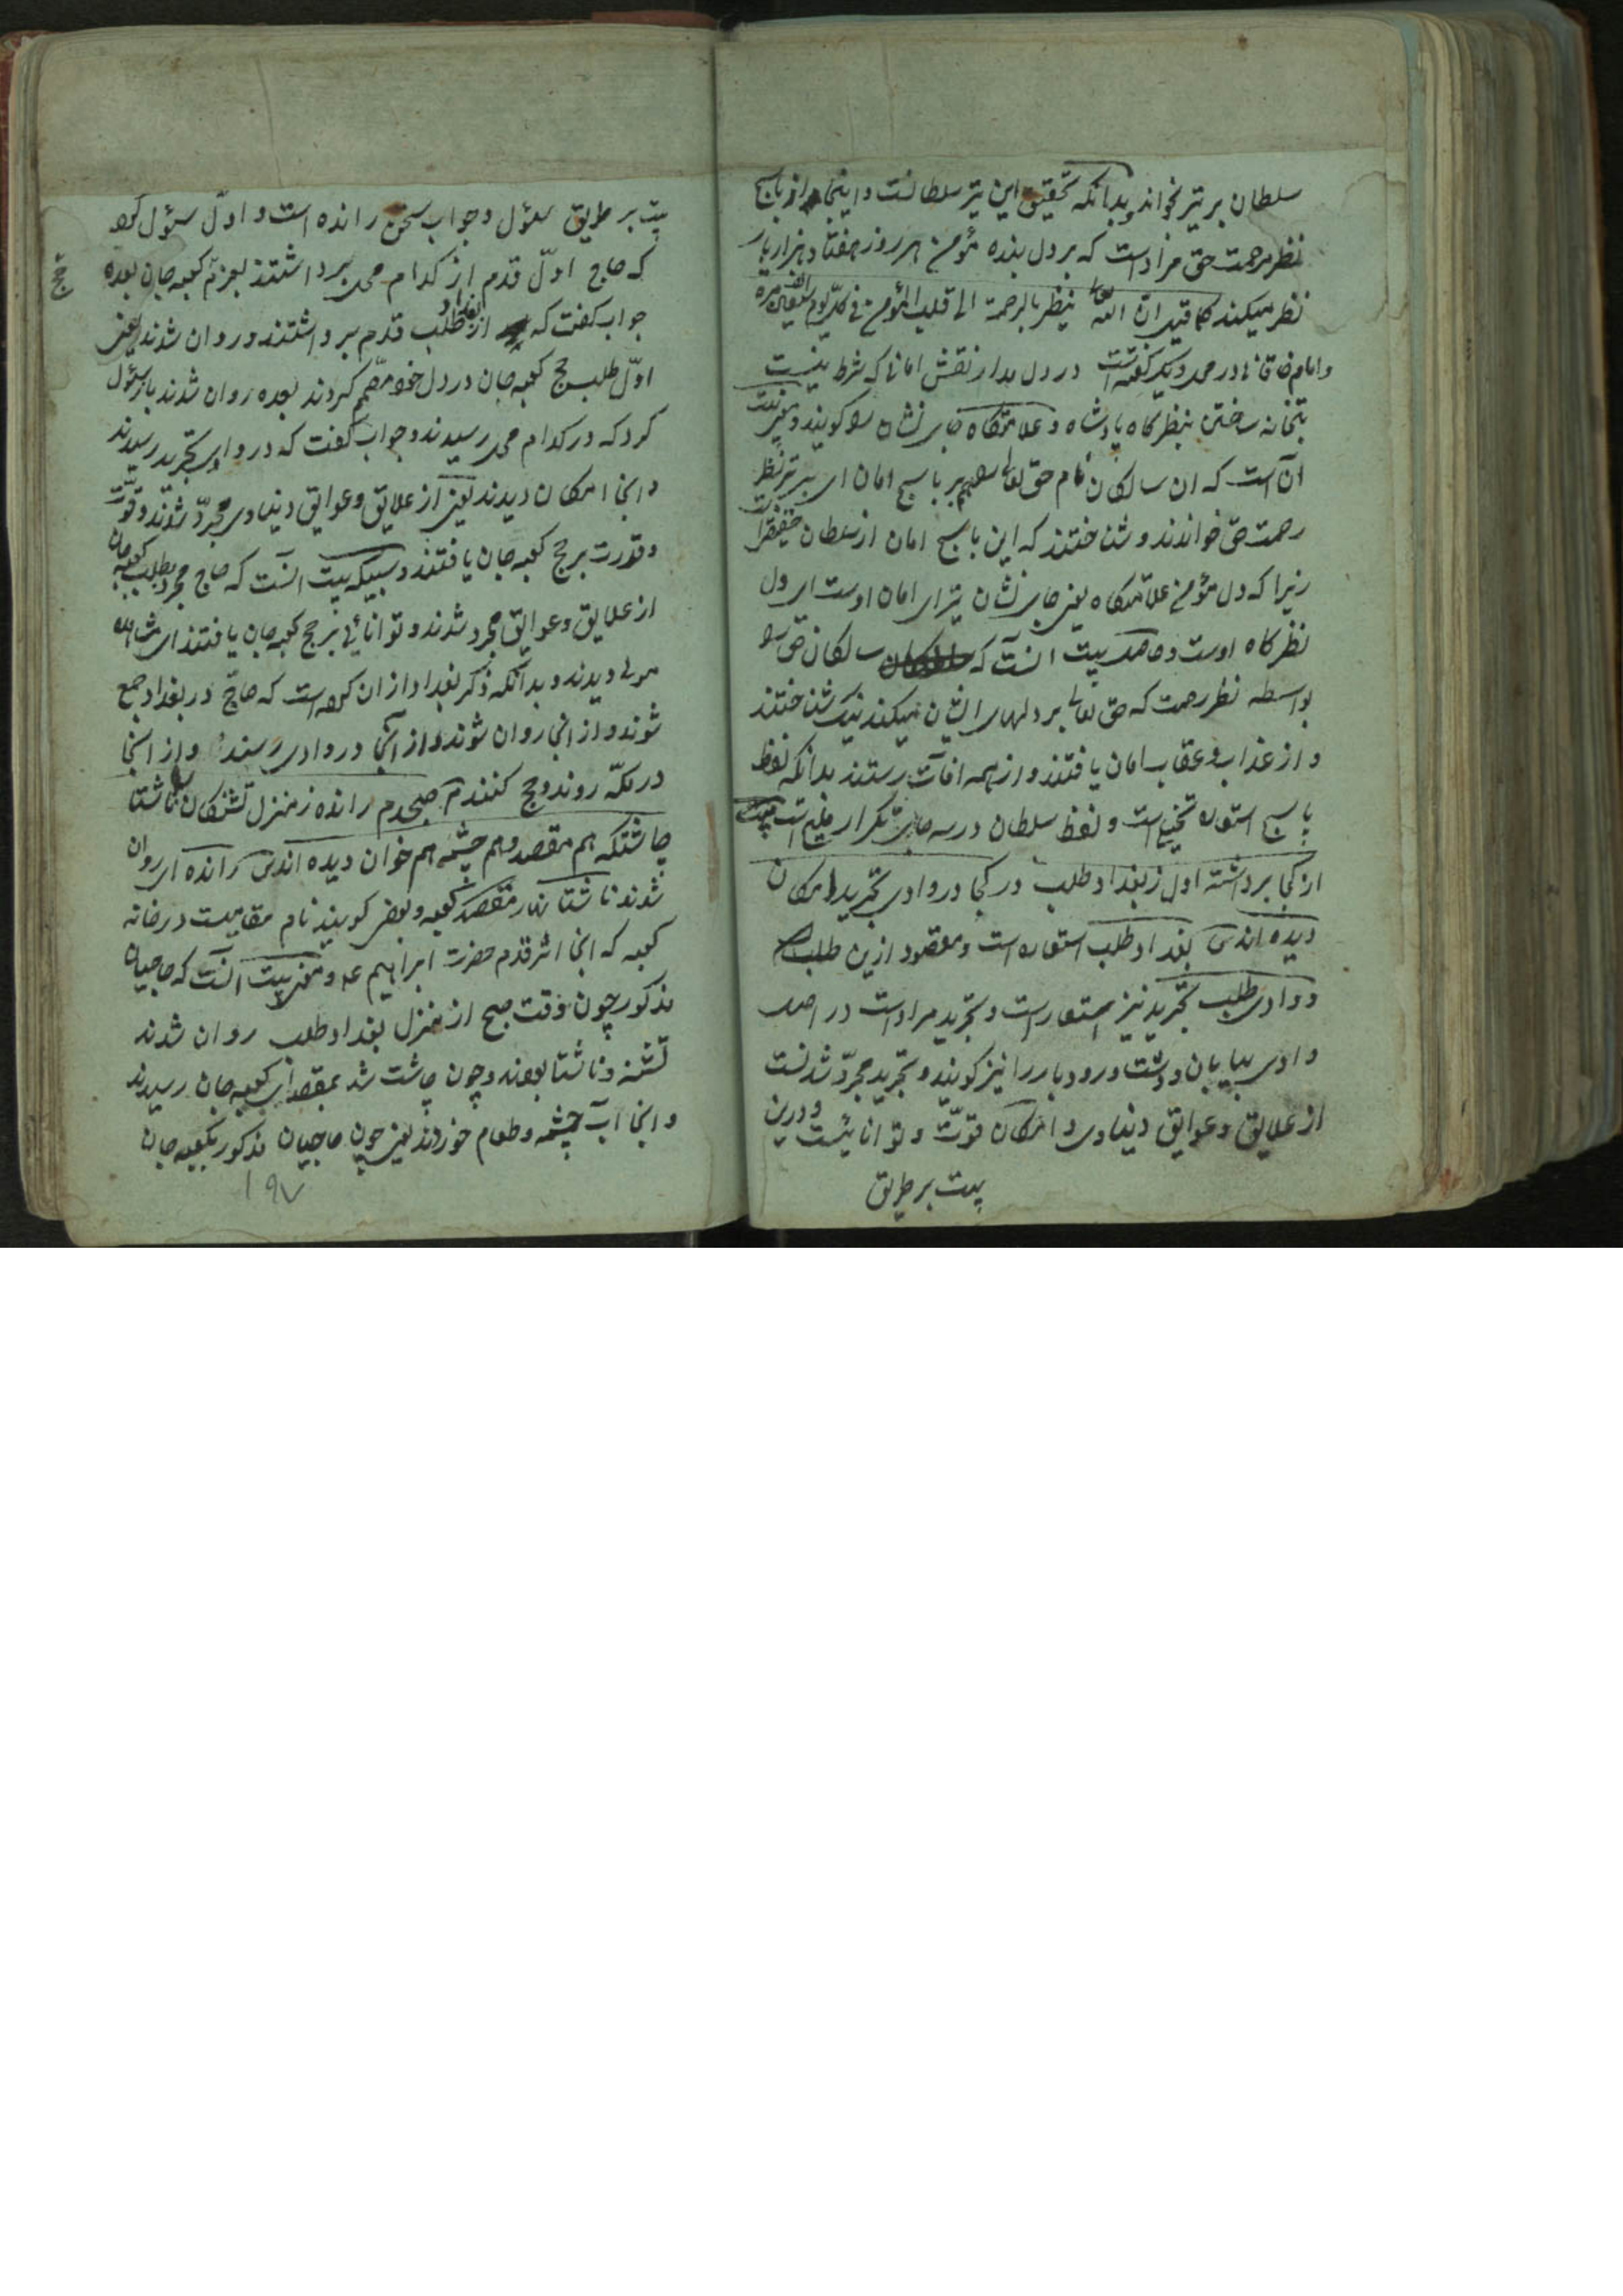 سلطان بر تیر خواند و بدانکه تحقیق این تیر سلطانست و اینجا از یاسج
نظر مرحمت حق مراد است که بر دل بنده مؤمن هر روز هفتاد هزار بار
نظر میکند کما قیل ان الله تعالی ینظر بالرحمة الی قلب المؤمن فی کل یوم سبعین الف مرة
و امام خاقانی در محل دیگر گفته است در دل مدار نقش امانی که شرط نیست
بتخانه ساختن بنظرگاه پادشاه و علامتگاه جای نشان را گویند و معنی بیت
آن است که ان سالکان نام حق تعالی را هم بر یاسج امان ای بر تیر نظر
رحمت حق خواندند و شناختند که این یاسج امان از سلطان حقیقت است
زیرا که دل مؤمن علامتگاه یعنی جای نشان تیرای امان اوست ای دل
نظرگاه اوست و حاصل بیت انست که سالکان حق را
بواسطه نظر رحمت که حق تعالی بر دلهای ایشان میکند نیک شناختند
و از عذاب و عقاب امان یافتند و از همه افات رستند بدانکه لفظ
یاسج استعاره تخییل است و لفظ سلطان در سه جای تکرار ملیح است بیت
از کجا برداشته اول ز بغداد طلب در کجا در وادی تجرید امکان
دیده اند س بغداد طلب استعاره است و مقصود ازین طلب
و وادی طلب تجرید نیز استعار است و تجرید مراد است در اصل
وادی بیابان و دشت و رودبار را نیز گویند و تجرید مجرد شدنست
از علایق و عوایق دنیاوی و امکان قوت و توانائیست و درین
بیت بر طریق
بیت بر طریق سؤل و جواب سخن رانده است و اول سؤل کرد
که حاج اول قدم از کدام محل برداشتند بعزم کعبه جان بعده
حج
جواب گفت که از بغداد طلب قدم برداشتند و روان شدند یعنی
اول طلب حج کعبه جان در دل خود مصمم کردند بعده روان شدند باز سؤل
کرد که در کدام محل رسیدند و جواب گفت که در وادی تجرید رسیدند
و انجا امکان دیدند یعنی از علایق و عوایق دنیاوی مجرد شدند و قوت
و قدرت بر حج کعبه جان یافتند و سبیکه بیت انست که حاج مجرد بطلب کعبه جان
از علایق و عوایق مجرد شدند و توانائی بر حج کعبه جان یافتند ای مشاهده
مولی دیدند و بدانکه ذکر بغداد از ان کرده است که حاج در بغداد جمع
شوند و از انجا روان شوند و از انجا در وادی رسند و از انجا
در مکه روند و حج کنند م صبحدم رانده ز منزل تشنگان ناشتا
چاشتگه هم مقصد و هم چشمه هم خوان دیده اند س رانده ای روان
شدند ناشتا نهار مقصد کعبه و بعضی گویند نام مقامیست در خانه
کعبه که انجا اثر قدم حضرت ابراهیم عم و معنی بیت انست که حاجیان
مذکور چون وقت صبح از منزل بغداد طلب روان شدند
تشنه و ناشتا بودند و چون چاشت شد بمقصدای کعبه جان رسیدند
و انجا آب چشمه و طعام خوردند یعنی چون حاجیان مذکور بکعبه جان
١٩٧